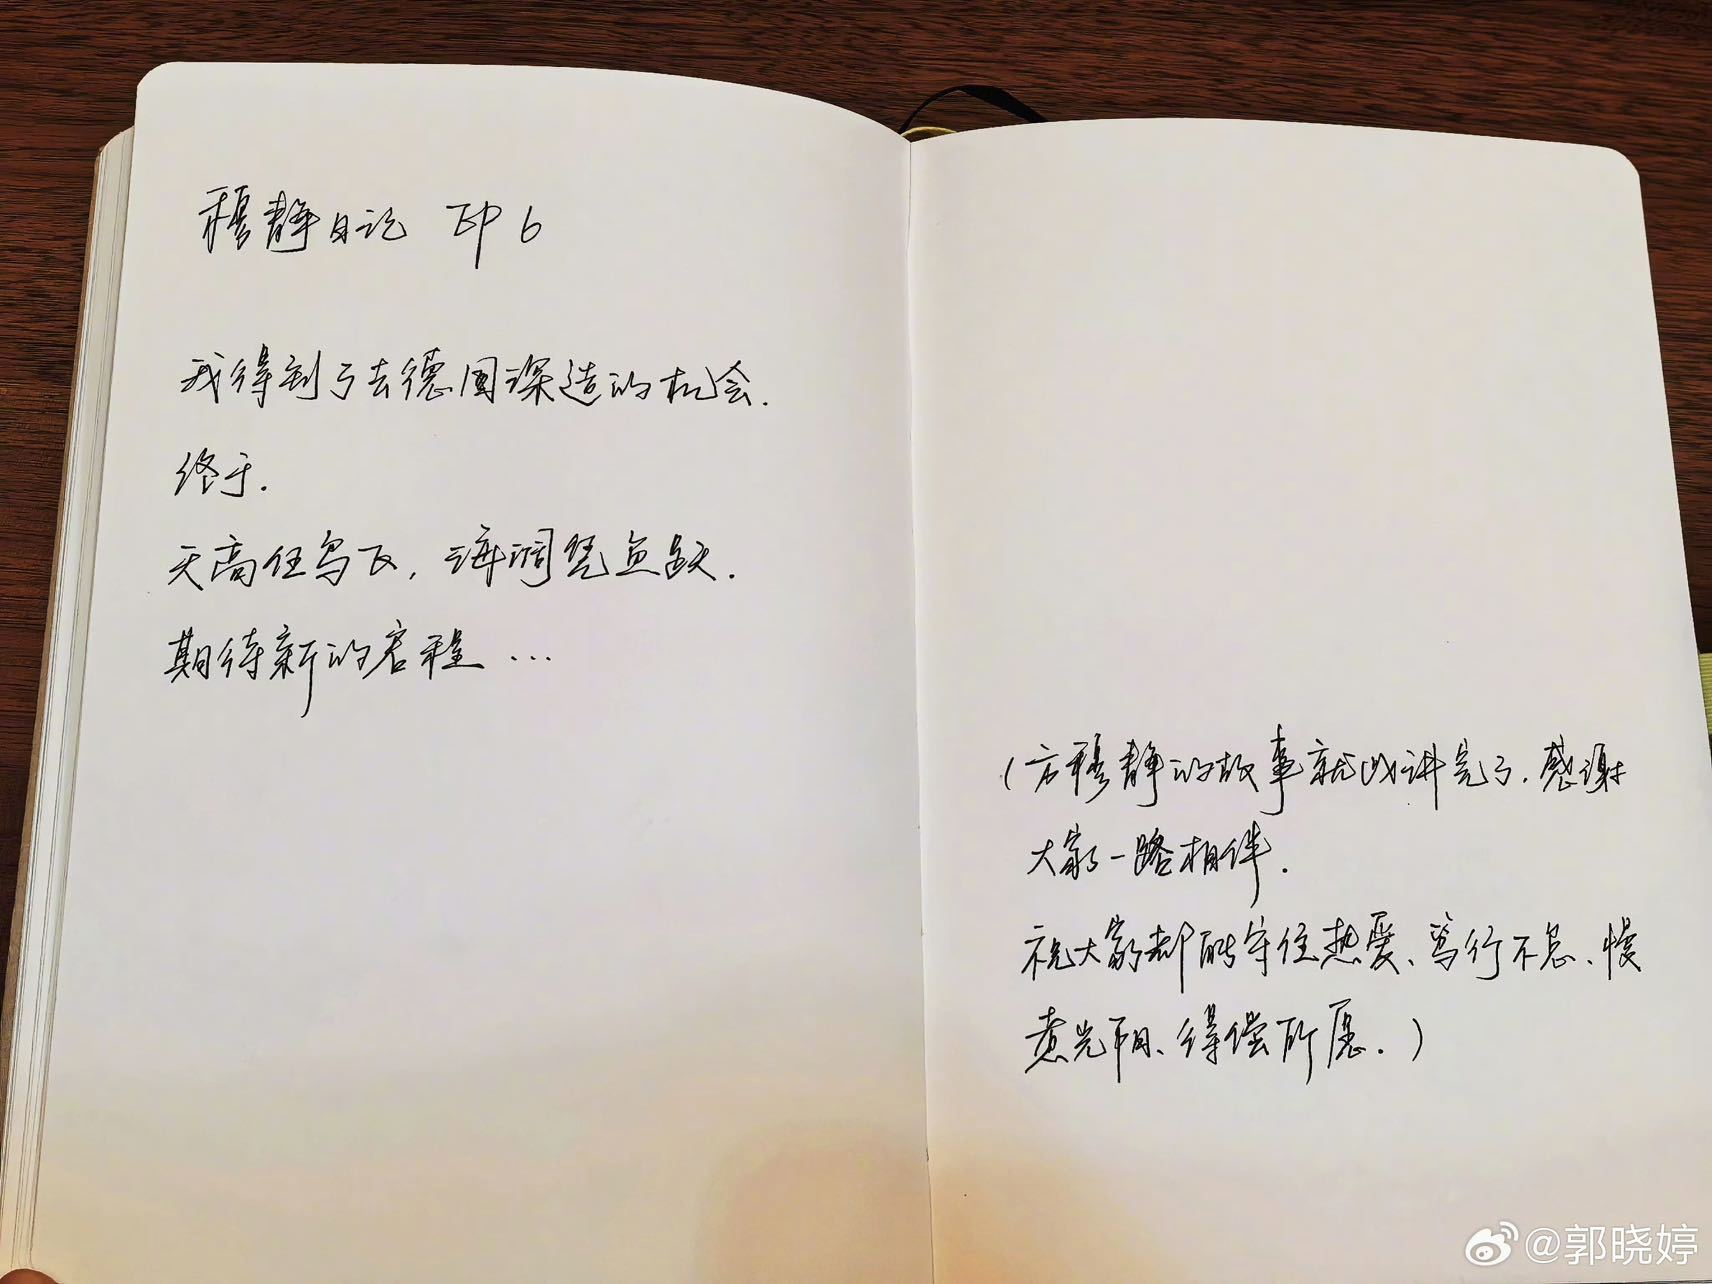 穆静日记 EP 6
我得到了去德国深造的机会.
终于.
天高任鸟飞, 海阔凭鱼跃.
期待新的启程 ...
(方穆静的故事就此讲完了. 感谢
大家一路相伴.
祝大家都能守住热爱、笃行不怠、慢
煮光阴、得偿所愿. )
@郭晓婷